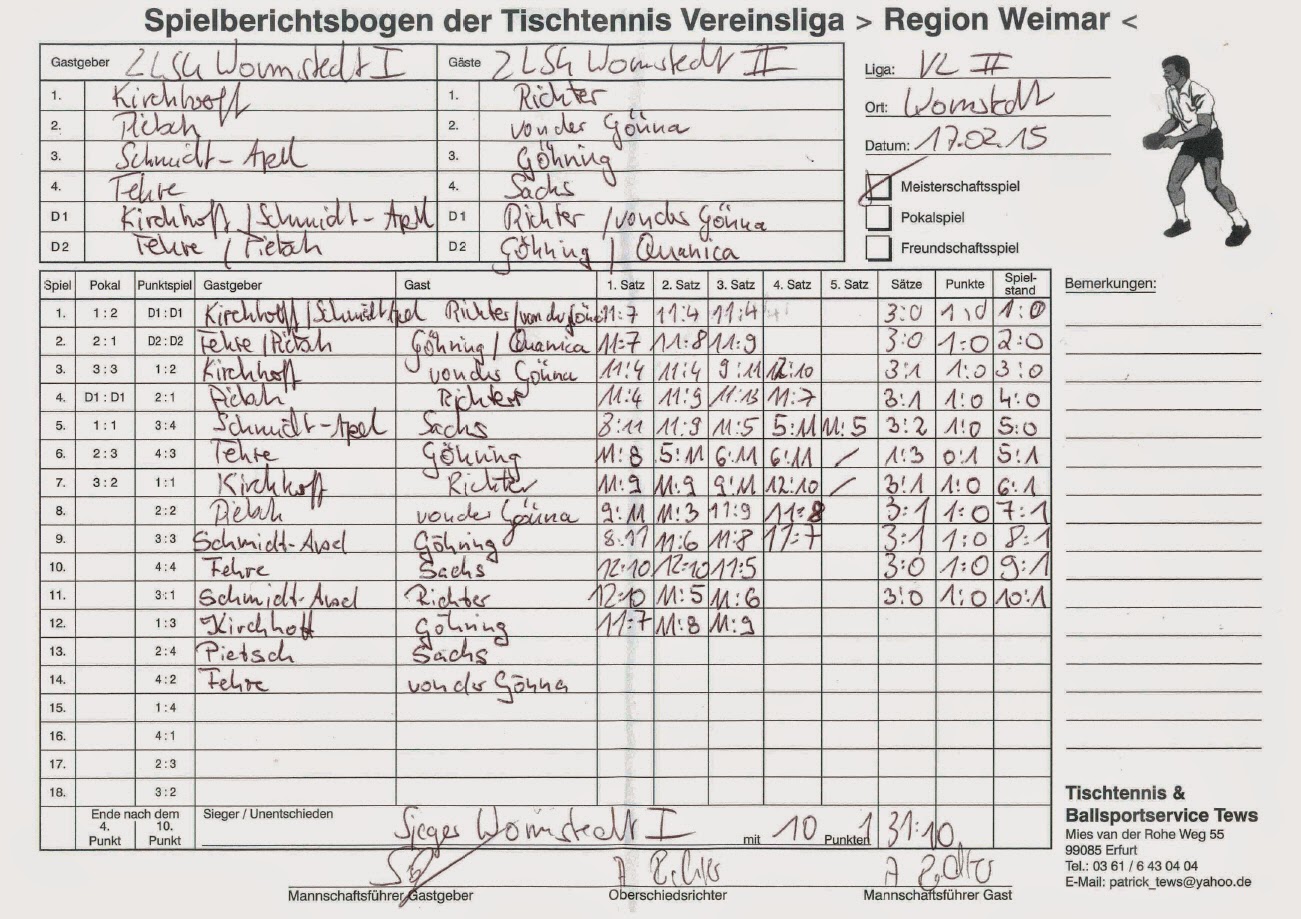 Spielberichtsbogen der Tischtennis Vereinsliga > Region Weimar <
Gastgeber ZLSG Wormstedt I Gäste ZLSG Wormstedt II
Liga: VL II
1. Kirchhoff 1. Richter
Ort: Wormstedt
2. 2. von der Gönna
Datum: 17.02.15
3. Schmidt-Apell 3. Göhring
4. Fehre 4. Sachs
Meisterschaftsspiel
D1 Kirchhoff / Schmidt-Apell D1 Richter / von der Gönna
Pokalspiel
D2 Fehre / D2 Göhring / Quanica
Freundschaftsspiel
Spiel Pokal Punktspiel Gastgeber Gast 1. Satz 2. Satz 3. Satz 4. Satz 5. Satz Sätze Punkte Spiel-stand Bemerkungen:
1. 1 : 2 D1 : D1 Kirchhoff / Schmidt Apel Richter / von der Gönna 11:7 11:4 11:4 3:0 1:0 1:0
2. 2 : 1 D2 : D2 Fehre / Göhring / Quanica 11:7 11:8 11:9 3:0 1:0 2:0
3. 3 : 3 1 : 2 Kirchhoff von der Gönna 11:4 11:4 9:11 12:10 3:1 1:0 3:0
4. D1 : D1 2 : 1 Richter 11:4 11:9 11:13 11:7 3:1 1:0 4:0
5. 1 : 1 3 : 4 Schmidt-Apel Sachs 3:11 11:9 11:5 5:11 11:5 3:2 1:0 5:0
6. 2 : 3 4 : 3 Fehre Göhring 11:8 5:11 6:11 6:11 / 1:3 0:1 5:1
7. 3 : 2 1 : 1 Kirchhoff Richter 11:9 11:9 9:11 12:10 / 3:1 1:0 6:1
8. 2 : 2 von der Gönna 9:11 11:3 11:9 11:8 3:1 1:0 7:1
9. 3 : 3 Schmidt-Apel Göhring 8:11 11:6 11:8 11:7 3:1 1:0 8:1
10. 4 : 4 Fehre Sachs 12:10 12:10 11:5 3:0 1:0 9:1
11. 3 : 1 Schmidt-Apel Richter 12:10 11:5 11:6 3:0 1:0 10:1
12. 1 : 3 Kirchhoff Göhring 11:7 11:8 11:9
13. 2 : 4 Pietsch Sachs
14. 4 : 2 Fehre von der Gönna
15. 1 : 4
16. 4 : 1
17. 2 : 3
18. 3 : 2
Ende nach dem 4. Punkt 10. Punkt Sieger / Unentschieden Sieger Wormstedt I mit 10 Punkten 1 31:10
Mannschaftsführer Gastgeber Oberschiedsrichter Mannschaftsführer Gast
Tischtennis &
Ballsportservice Tews
Mies van der Rohe Weg 55
99085 Erfurt
Tel.: 03 61 / 6 43 04 04
E-Mail: patrick_tews@yahoo.de